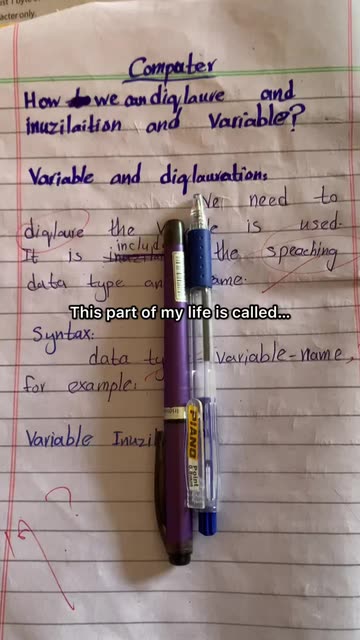 acter only.
Computer
How we can diqlaure and
inuzilaition and Variable?
Variable and diqlauration:
We need to
diqlaure the is used.
It is includ the speaching
data type an name.
This part of my life is called...
Syntax:
data ty variable-name,
for example:
Variable Inuzil
PIANO
Point
?